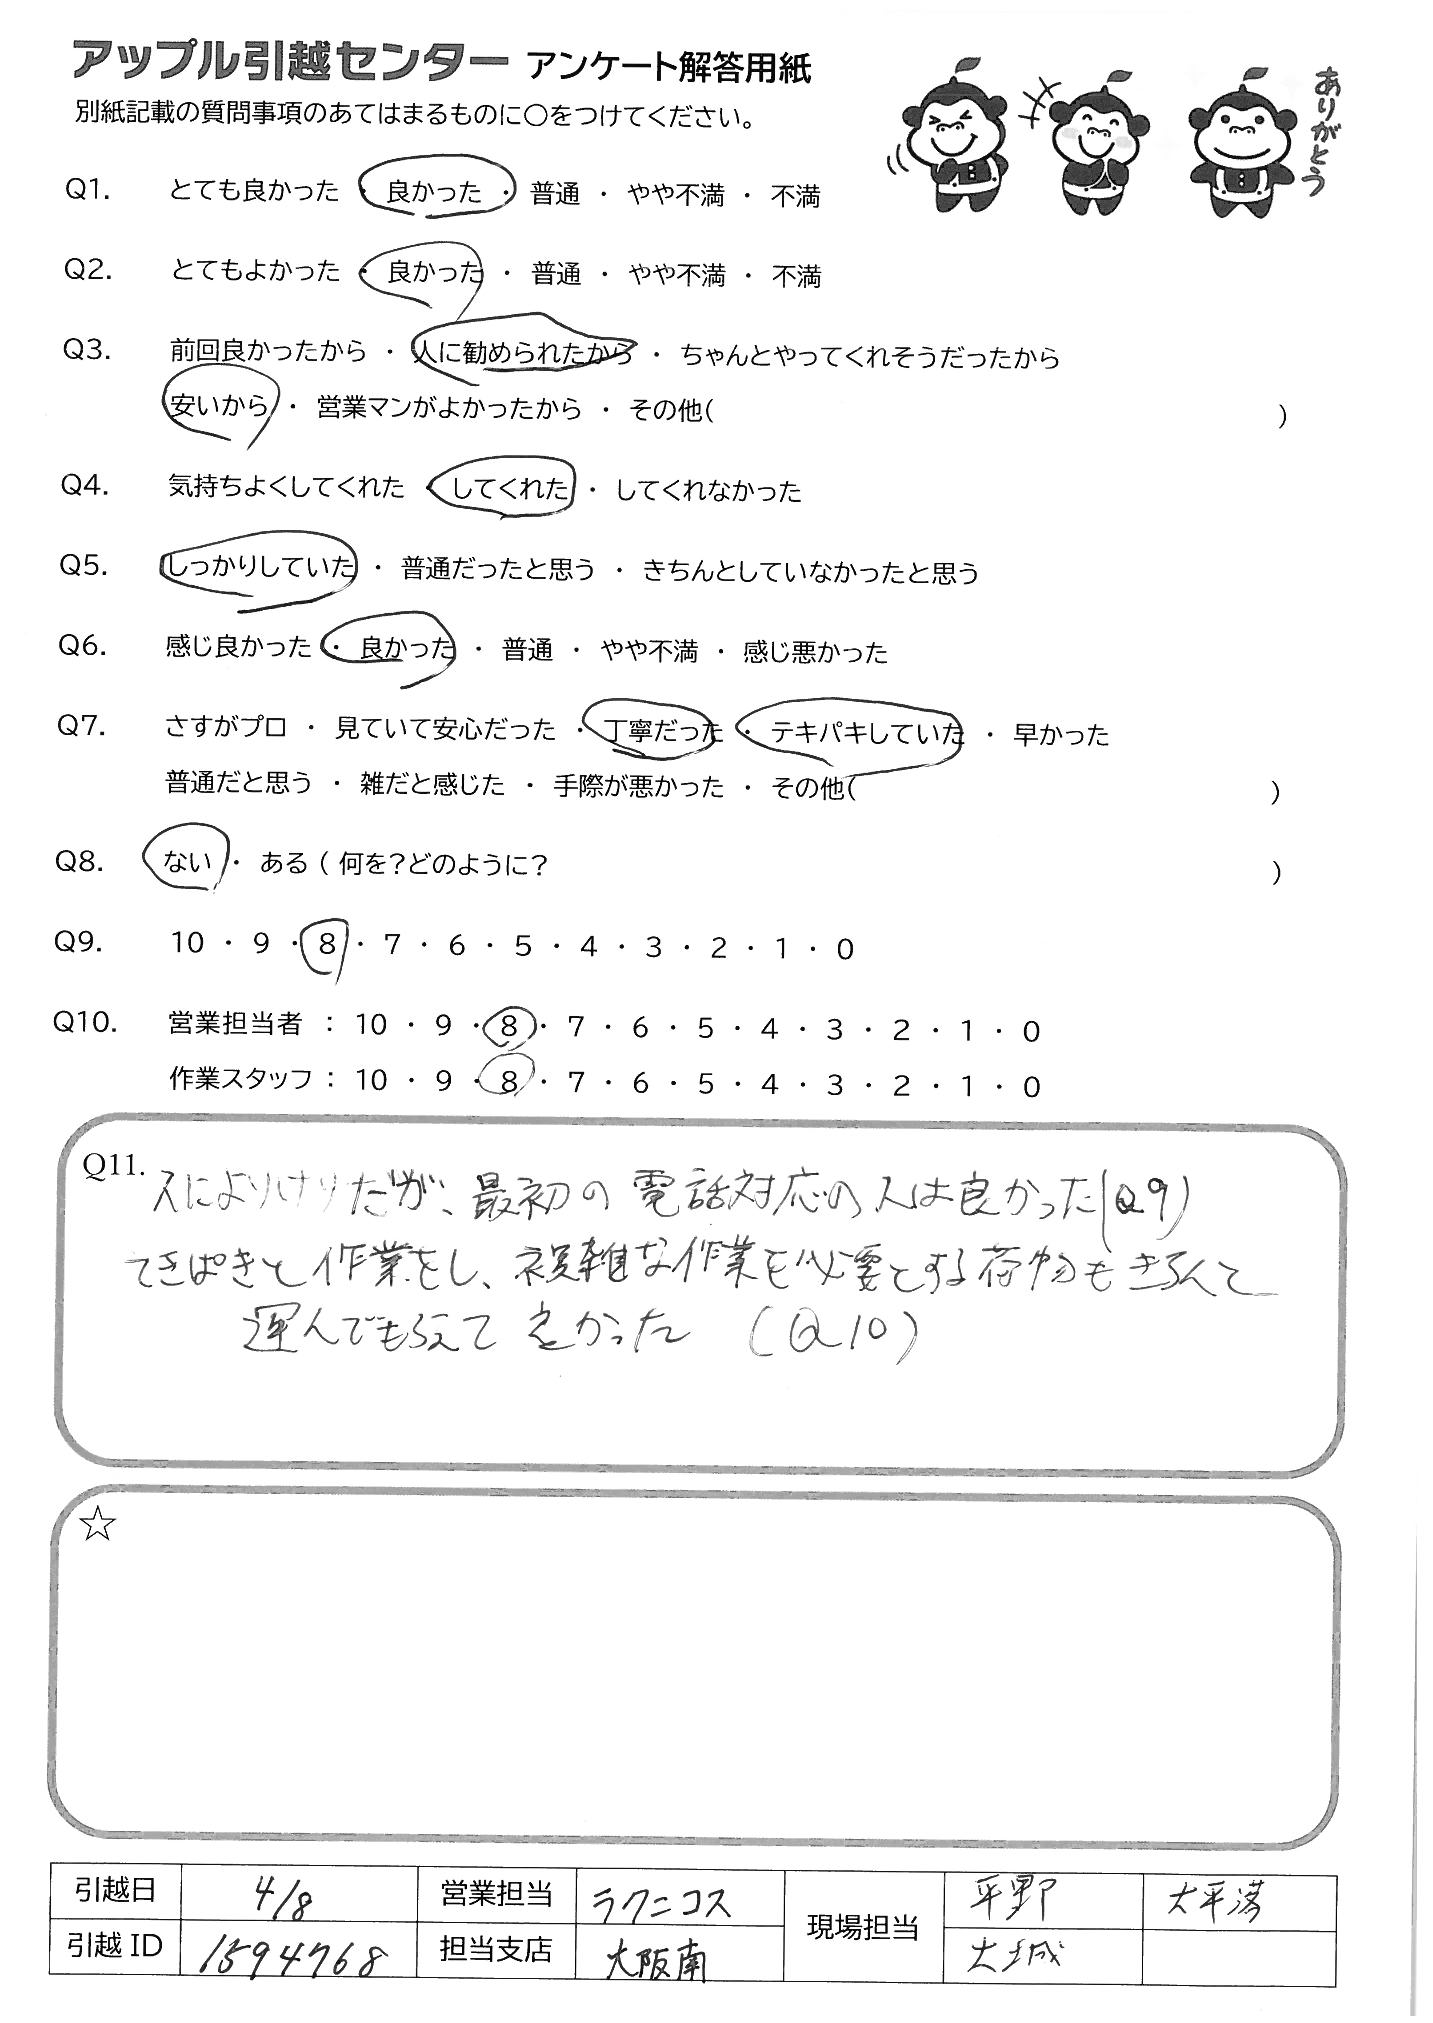 アップル引越センター アンケート解答用紙
別紙記載の質問事項のあてはまるものに〇をつけてください。
ありがとう
Q1. とても良かった ・ 良かった ・ 普通 ・ やや不満 ・ 不満
Q2. とてもよかった ・ 良かった ・ 普通 ・ やや不満 ・ 不満
Q3. 前回良かったから ・ 人に勧められたから ・ ちゃんとやってくれそうだったから
安いから ・ 営業マンがよかったから ・ その他( )
Q4. 気持ちよくしてくれた ・ してくれた ・ してくれなかった
Q5. しっかりしていた ・ 普通だったと思う ・ きちんとしていなかったと思う
Q6. 感じ良かった ・ 良かった ・ 普通 ・ やや不満 ・ 感じ悪かった
Q7. さすがプロ ・ 見ていて安心だった ・ 丁寧だった ・ テキパキしていた ・ 早かった
普通だと思う ・ 雑だと感じた ・ 手際が悪かった ・ その他( )
Q8. ない ・ ある ( 何を?どのように? )
Q9. 10 ・ 9 ・ 8 ・ 7 ・ 6 ・ 5 ・ 4 ・ 3 ・ 2 ・ 1 ・ 0
Q10. 営業担当者 : 10 ・ 9 ・ 8 ・ 7 ・ 6 ・ 5 ・ 4 ・ 3 ・ 2 ・ 1 ・ 0
作業スタッフ : 10 ・ 9 ・ 8 ・ 7 ・ 6 ・ 5 ・ 4 ・ 3 ・ 2 ・ 1 ・ 0
Q11. 人によりけりだが、最初の電話対応の人は良かった(Q9)
てきぱきと作業をし、複雑な作業を必要とする荷物もきちんと
運んでもらえて良かった (Q10)
☆
引越日 4/8 営業担当 ラクニコス 現場担当 平野 大平落
引越ID 1594768 担当支店 大阪南 大城